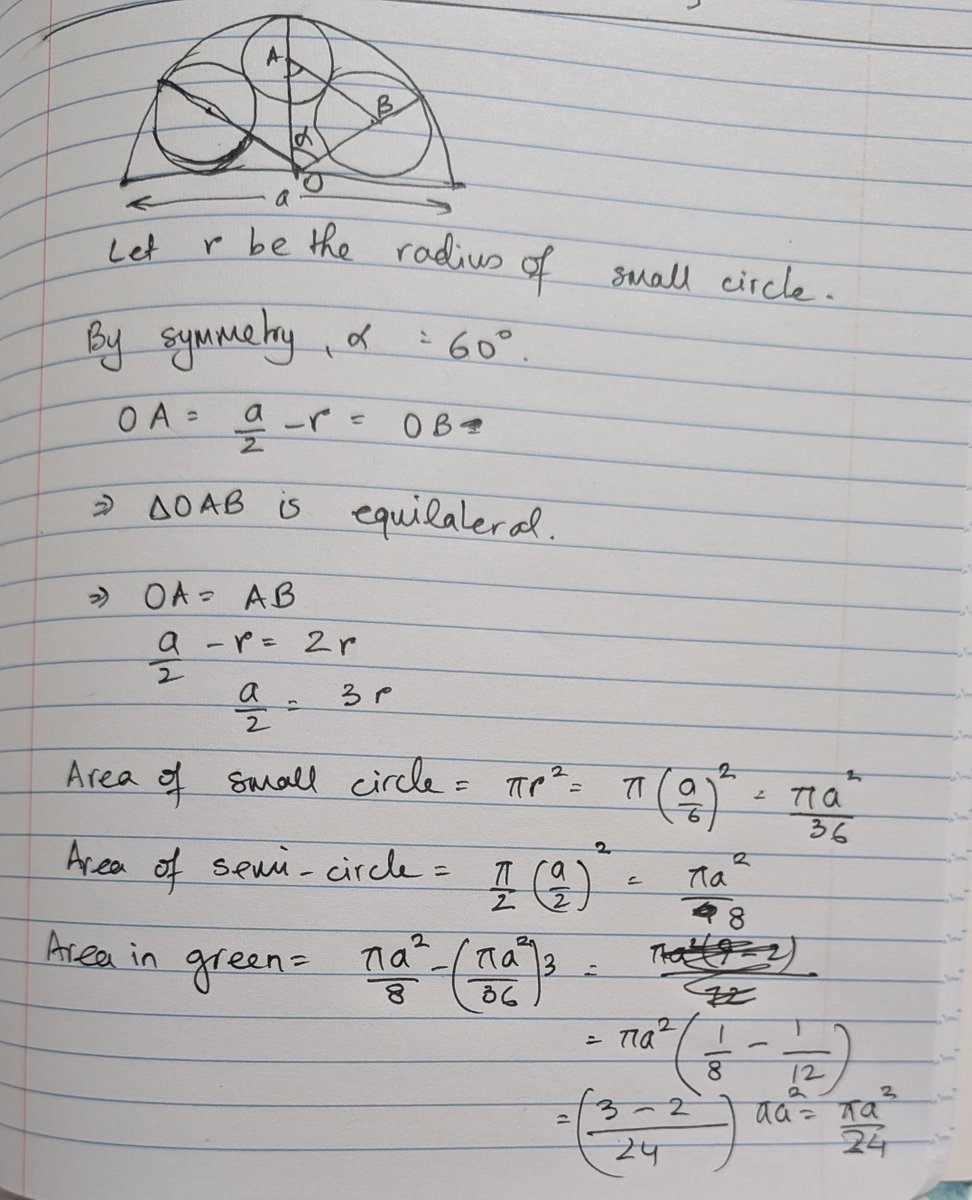 A
B
α
O
a
Let r be the radius of small circle.
By symmetry, α = 60°.
OA = a/2 - r = OB
⇒ ΔOAB is equilateral.
⇒ OA = AB
a/2 - r = 2r
a/2 = 3r
Area of small circle = πr² = π(a/6)² = πa²/36
Area of semi-circle = π/2 (a/2)² = πa²/8
Area in green = πa²/8 - (πa²/36)3 = πa²(9-2)/72
= πa²(1/8 - 1/12)
= (3-2/24) πa² = πa²/24